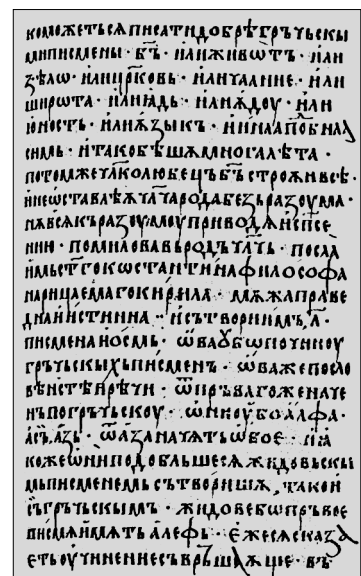 коможетьсѧписатидобрѣгрьчьскы
миписмены · бъ҃ · илиживѡтъ · или
ѕѣлѡ · илицр҃ковь · иличаание · или
широта · илиꙗдь · илиѫдоу · или
юность · илиѫзыкъ · иинаапѡ́бнаа
симь · итакобѣшѫмногалѣта ·
потомжеч҃лколюбець б҃ъстроѫивсѣ ·
инеѡставлѣѫч҃лчародабезьразоума ·
нѫвсѧкъразоумоуприводѧиспсе
нию · помиловавьродъч҃лчь · посла
имьст҃гокѡстантинафилософа
нарицаемагокирила · мѫжаправе
днаиистинна · исътвориимъ · л҃ ·
писменаиосмь · ѡ҃ваубѡпочиноу
грьчьскыхьписменъ · ѡ҃важепосло
вѣнстѣирѣчи · ѿпръвагоженаче
нъпогръчьскоу · ѡниоубоалфа ·
асъ҃азь · ѿазаначѧтьѡбое · иꙗ
кожеѡниподобльшесѧжидовьскы
мьписменемьсътворишѧ, такои
съ҃гръчьскымъ · жидовебѡпръвое
писмѧимѧтьалефь · ежесѧсказа
етьоучинениесъврьшаѧще · въ